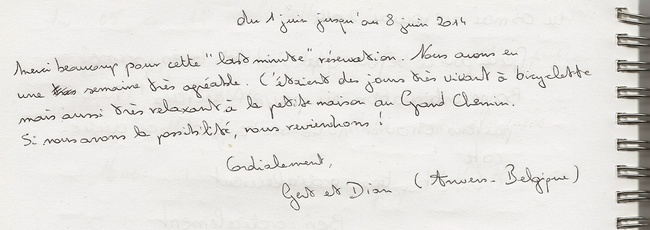 du 1 juin jusqu'au 8 juin 2014
Merci beaucoup pour cette "last minute" réservation. Nous avons eu
une semaine très agréable. C'étaient des jours très vivant à bicyclette
mais aussi très relaxant à la petite maison au Grand Chemin.
Si nous avons la possibilité, nous reviendrons !
Cordialement,
Gert et Dian (Anvers - Belgique)